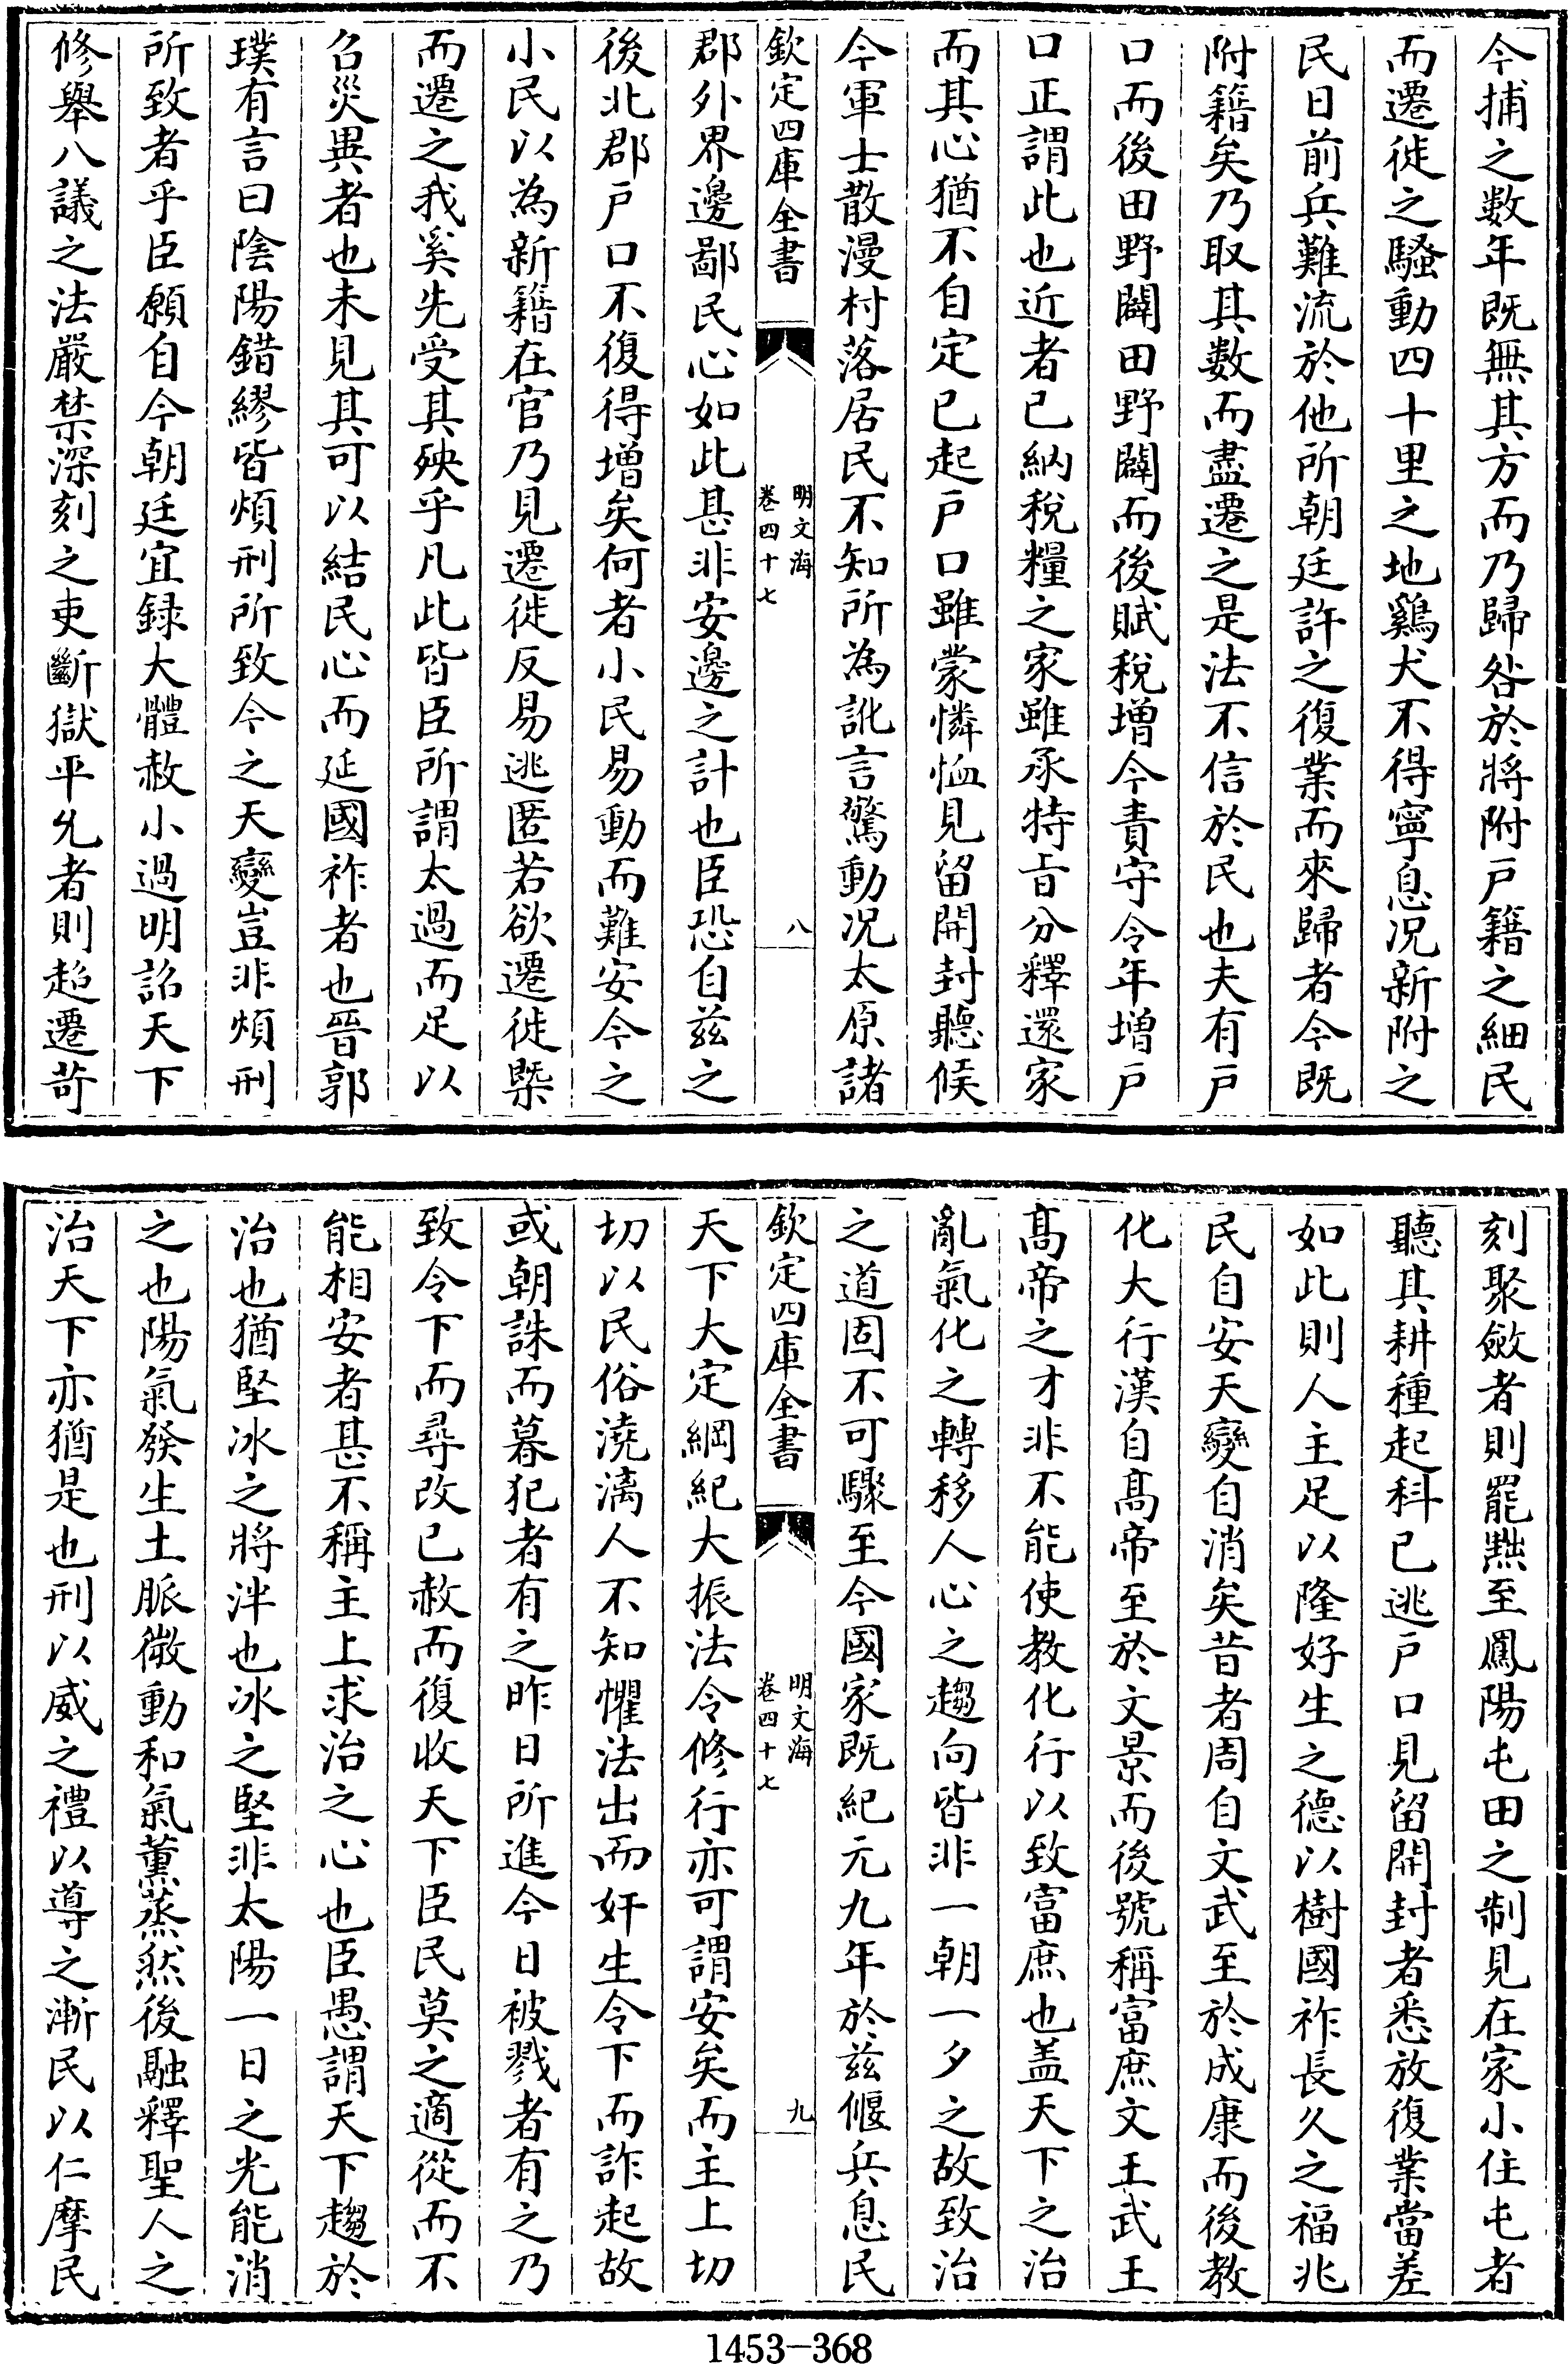 今捕之数年既無其方而乃歸咎於將附户籍之細民
而遷徙之騷動四十里之地鷄犬不得寧息况新附之
民日前兵難流於他所朝廷許之復業而來歸者今既
附籍矣乃取其數而盡遷之是法不信於民也夫有户
口而後田野闢田野闢而後賦稅增今責守令年增户
口正謂此也近者已納稅糧之家雖承特旨分釋還家
而其心猶不自定已起户口雖蒙憐恤見留開封聽候
今軍士散漫村落居民不知所為訛言驚動况太原諸
欽定四庫全書
明文海
卷四十七
八
郡外界邊鄙民心如此甚非安邊之計也臣恐自兹之
後北郡户口不復得增矣何者小民易動而難安今之
小民以為新籍在官乃見遷徙反易逃匿若欲遷徙槩
而遷之我奚先受其殃乎凡此皆臣所謂太過而足以
召災異者也未見其可以結民心而延國祚者也晉郭
璞有言曰陰陽錯繆皆煩刑所致今之天變豈非煩刑
所致者乎臣願自今朝廷宜録大體赦小過明詔天下
修舉八議之法嚴禁深刻之吏斷獄平允者則超遷苛
刻聚斂者則罷黜至鳳陽屯田之制見在家小住屯者
聽其耕種起科已逃户口見留開封者悉放復業當差
如此則人主足以隆好生之德以樹國祚長久之福兆
民自安天變自消矣昔者周自文武至於成康而後教
化大行漢自髙帝至於文景而後號稱富庶文王武王
髙帝之才非不能使教化行以致富庶也盖天下之治
亂氣化之轉移人心之趨向皆非一朝一夕之故致治
之道固不可驟至今國家既紀元九年於兹偃兵息民
欽定四庫全書
明文海
卷四十七
九
天下大定綱紀大振法令修行亦可謂安矣而主上切
切以民俗澆漓人不知懼法出而奸生令下而詐起故
或朝誅而暮犯者有之昨日所進今日被戮者有之乃
致令下而尋改已赦而復收天下臣民莫之適從而不
能相安者甚不稱主上求治之心也臣愚謂天下趨於
治也猶堅冰之將泮也冰之堅非太陽一日之光能消
之也陽氣發生土脈微動和氣薰蒸然後融釋聖人之
治天下亦猶是也刑以威之禮以導之漸民以仁摩民
1453-368